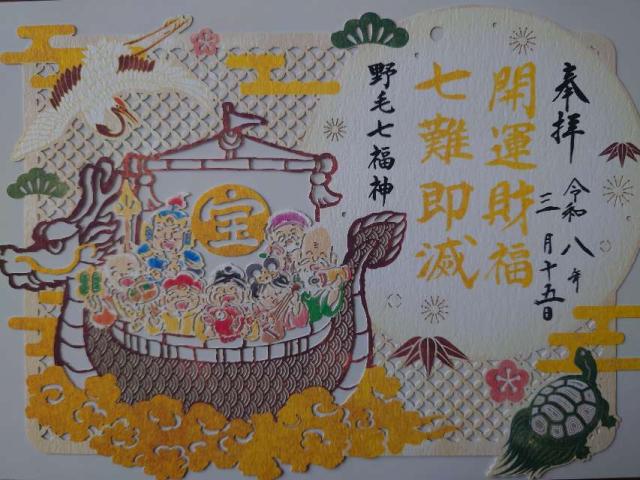 奉拝
令和八年
三月十五日
開運財福
七難即滅
野毛七福神
宝